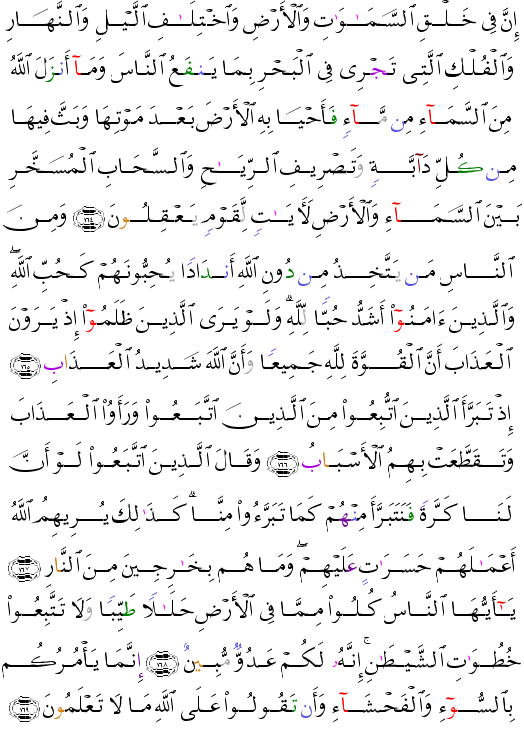 إِنَّ فِى خَلْقِ ٱلسَّمَـٰوَٰتِ وَٱلْأَرْضِ وَٱخْتِلَـٰفِ ٱلَّيْلِ وَٱلنَّهَارِ
وَٱلْفُلْكِ ٱلَّتِى تَجْرِى فِى ٱلْبَحْرِ بِمَا يَنفَعُ ٱلنَّاسَ وَمَآ أَنزَلَ ٱللَّهُ
مِنَ ٱلسَّمَآءِ مِن مَّآءٍ فَأَحْيَا بِهِ ٱلْأَرْضَ بَعْدَ مَوْتِهَا وَبَثَّ فِيهَا
مِن كُلِّ دَآبَّةٍ وَتَصْرِيفِ ٱلرِّيَـٰحِ وَٱلسَّحَابِ ٱلْمُسَخَّرِ
بَيْنَ ٱلسَّمَآءِ وَٱلْأَرْضِ لَـَٔايَـٰتٍ لِّقَوْمٍ يَعْقِلُونَ ﴿١٦٤﴾ وَمِنَ
ٱلنَّاسِ مَن يَتَّخِذُ مِن دُونِ ٱللَّهِ أَندَادًا يُحِبُّونَهُمْ كَحُبِّ ٱللَّهِ ۖ
وَٱلَّذِينَ ءَامَنُوٓا۟ أَشَدُّ حُبًّا لِّلَّهِ ۗ وَلَوْ يَرَى ٱلَّذِينَ ظَلَمُوٓا۟ إِذْ يَرَوْنَ
ٱلْعَذَابَ أَنَّ ٱلْقُوَّةَ لِلَّهِ جَمِيعًا وَأَنَّ ٱللَّهَ شَدِيدُ ٱلْعَذَابِ ﴿١٦٥﴾
إِذْ تَبَرَّأَ ٱلَّذِينَ ٱتُّبِعُوا۟ مِنَ ٱلَّذِينَ ٱتَّبَعُوا۟ وَرَأَوُا۟ ٱلْعَذَابَ
وَتَقَطَّعَتْ بِهِمُ ٱلْأَسْبَابُ ﴿١٦٦﴾ وَقَالَ ٱلَّذِينَ ٱتَّبَعُوا۟ لَوْ أَنَّ
لَنَا كَرَّةً فَنَتَبَرَّأَ مِنْهُمْ كَمَا تَبَرَّءُوا۟ مِنَّا ۗ كَذَٰلِكَ يُرِيهِمُ ٱللَّهُ
أَعْمَـٰلَهُمْ حَسَرَٰتٍ عَلَيْهِمْ ۖ وَمَا هُم بِخَـٰرِجِينَ مِنَ ٱلنَّارِ ﴿١٦٧﴾
يَـٰٓأَيُّهَا ٱلنَّاسُ كُلُوا۟ مِمَّا فِى ٱلْأَرْضِ حَلَـٰلًا طَيِّبًا وَلَا تَتَّبِعُوا۟
خُطُوَٰتِ ٱلشَّيْطَـٰنِ ۚ إِنَّهُۥ لَكُمْ عَدُوٌّ مُّبِينٌ ﴿١٦٨﴾ إِنَّمَا يَأْمُرُكُم
بِٱلسُّوٓءِ وَٱلْفَحْشَآءِ وَأَن تَقُولُوا۟ عَلَى ٱللَّهِ مَا لَا تَعْلَمُونَ ﴿١٦٩﴾